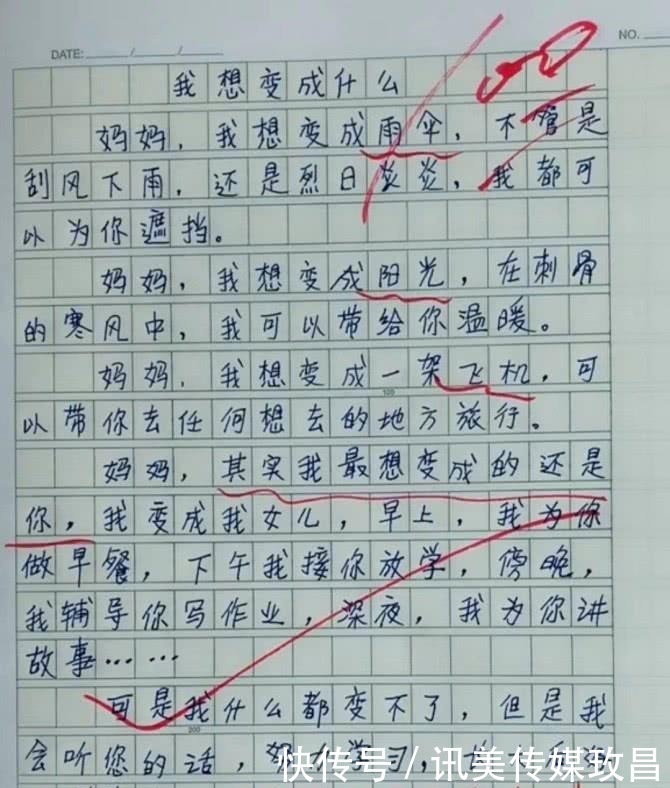 DATE: / /
NO.
我想变成什么
妈妈，我想变成雨伞，不管是
刮风下雨，还是烈日炎炎，我都可
以为你遮挡。
妈妈，我想变成阳光，在刺骨
的寒风中，我可以带给你温暖。
妈妈，我想变成一架飞机，可
100
以带你去任何想去的地方旅行。
妈妈，其实我最想变成的还是
你，我变成我女儿，早上，我为你
做早餐，下午我接你放学，傍晚，
我辅导你写作业，深夜，我为你讲
故事……
可是我什么都变不了，但是我
200
会听您的话，努力学习，
快传号／讯美传媒玫昌